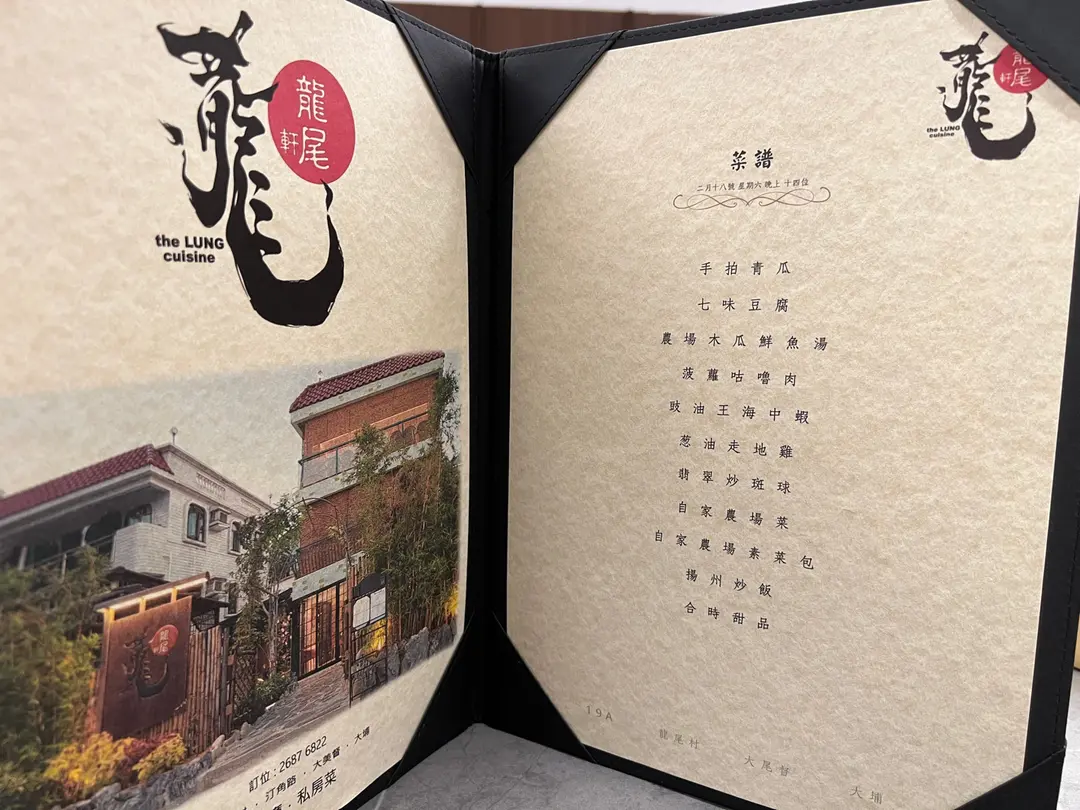 龍尾
軒
the LUNG
cuisine
龍尾
軒
訂位 : 2687 6822
汀角路 · 大美督 · 大埔
私房菜
龍尾
軒
the LUNG
cuisine
菜譜
二月十八號 星期六 晚上 十四位
手拍青瓜
七味豆腐
農場木瓜鮮魚湯
菠蘿咕嚕肉
豉油王海中蝦
葱油走地雞
翡翠炒斑球
自家農場菜
自家農場素菜包
揚州炒飯
合時甜品
19A
龍尾村
大尾督
大埔